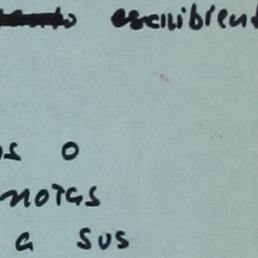 escribient
os o
notas
a sus